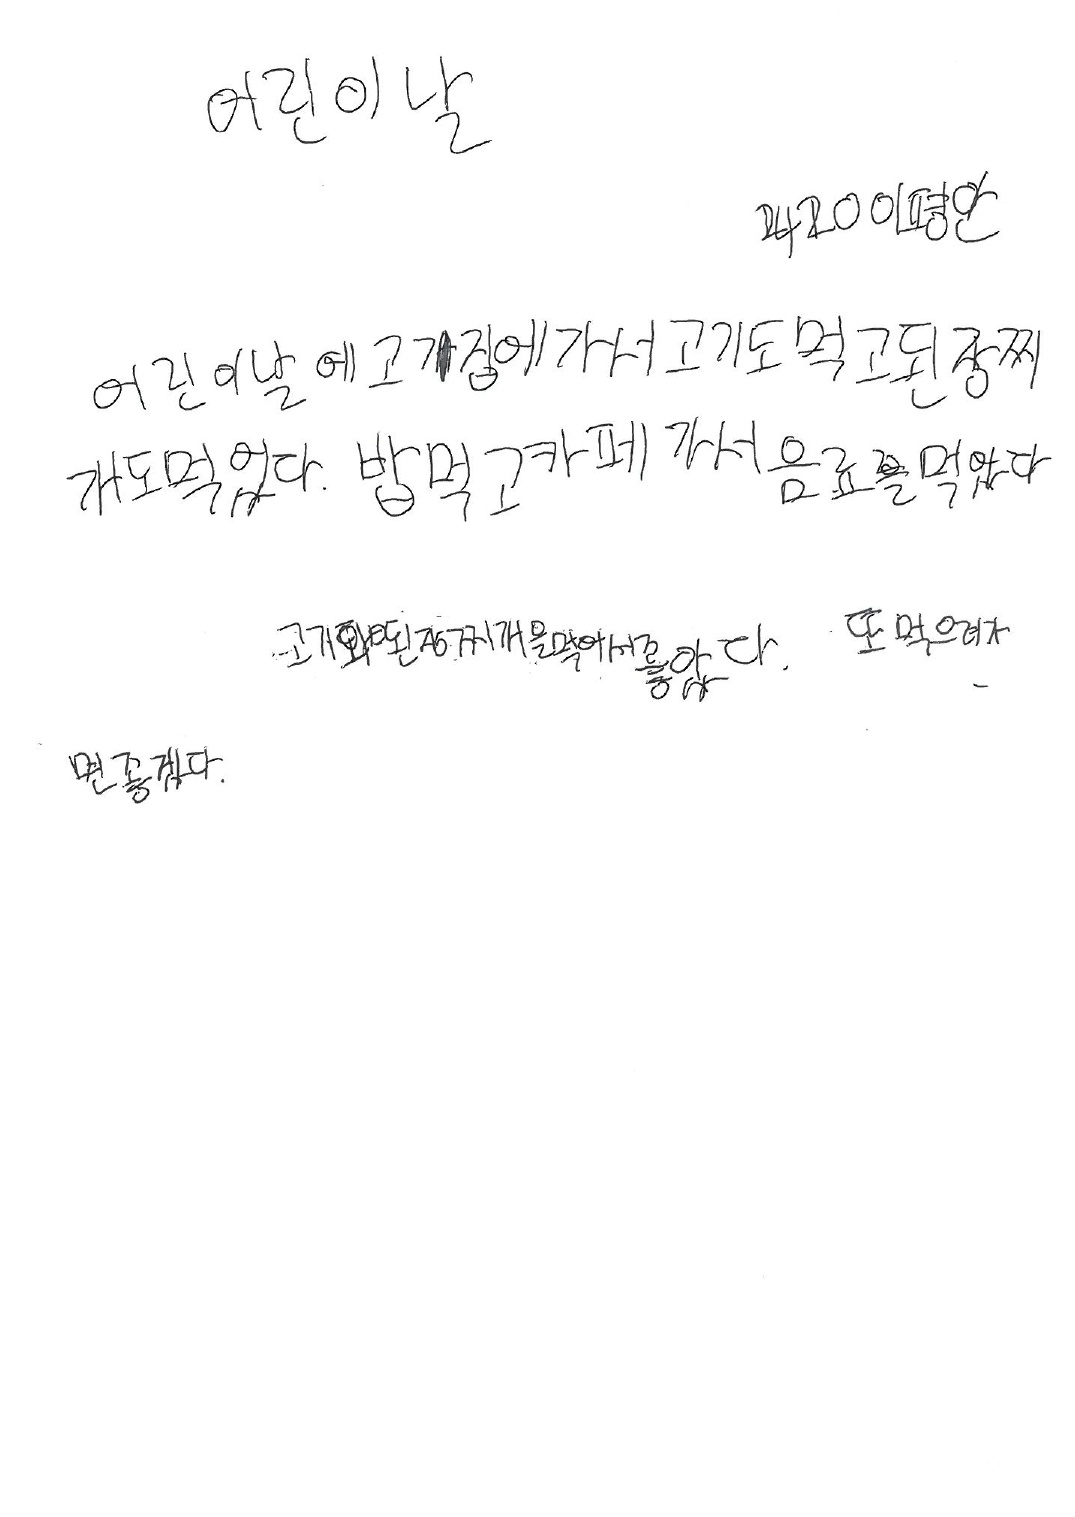 어린이날
이평안
어린이날에 고기집에 가서 고기도 먹고 된장찌
개도 먹었다. 밥먹고 카페 가서 음료를 먹았다
고기와 된장찌개을 먹어서 좋았다. 또 먹으러가
면 좋겠다.